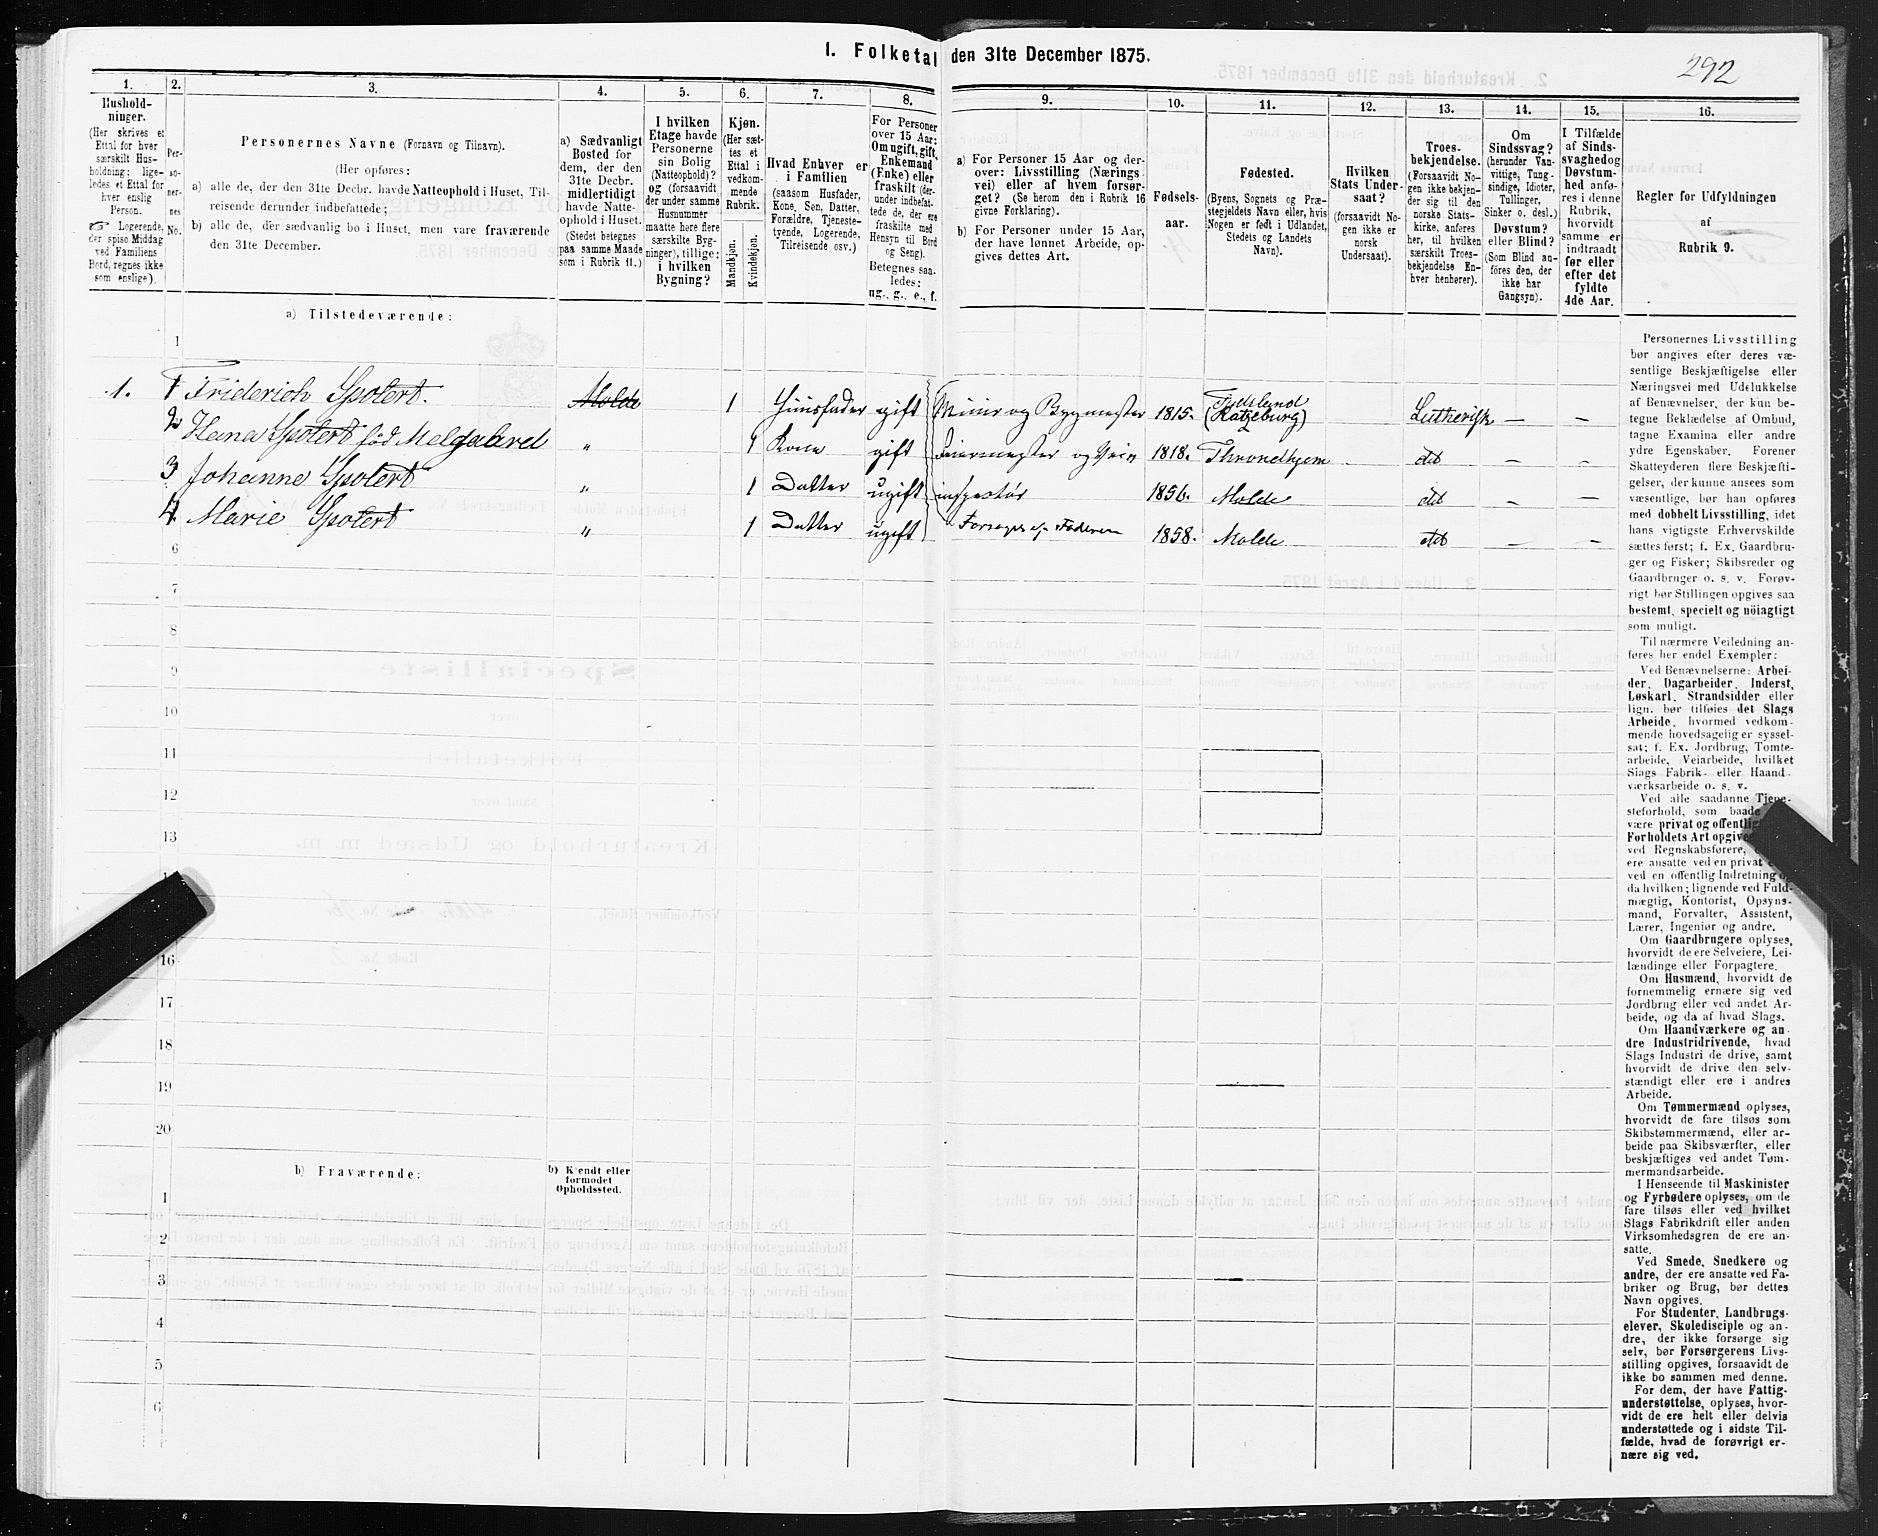 292
1. Folketal den 31te December 1875.
1. 2. 3. 4. 5. 6. 7. 8. 9. 10. 11. 12. 13. 14. 15. 16.
Hushold-
ninger.
(Her skrives et
Ettal for hver
særskilt Hus-
holdning; lige-
ledes et Ettal for
hver enslig
Person.
☞ Logerende,
der spise Middag
ved Familiens
Bord, regnes ikke
som enslige).
Per-
so-
ner-
nes
No.
Personernes Navne (Fornavn og Tilnavn).
(Her opføres:
a) alle de, der den 31te Decbr. havde Natteophold i Huset, Til-
reisende derunder indbefattede;
b) alle de, der sædvanlig bo i Huset, men vare fraværende
den 31te December.
a) Sædvanligt
Bosted for
dem, der den
31te Decbr.
midlertidigt
havde Natte-
ophold i Huset.
(Stedet betegnes
paa samme Maade
som i Rubrik 11.)
I hvilken
Etage havde
Personerne
sin Bolig
(Natteophold)?
og (forsaavidt
der under samme
Husnummer
maatte høre flere
særskilte Byg-
ninger), tillige:
i hvilken
Bygning?
Kjøn.
(Her sæt-
tes et
Ettal i
vedkom-
mende
Rubrik.
Mandkjøn.
Kvindekjøn.
Hvad Enhver er
i Familien
(saasom Husfader,
Kone, Søn, Datter,
Forældre, Tjeneste-
tyende, Logerende,
Tilreisende osv.)
For Personer
over 15 Aar:
Om ugift, gift,
Enkemand
(Enke) eller
fraskilt (der-
under indbefat-
tede de, der ere
fraskilte med
Hensyn til Bord
og Seng).
Betegnes saa-
ledes:
ug., g., e., f.
a) For Personer 15 Aar og der-
over: Livsstilling (Nærings-
vei) eller af hvem forsør-
get? (Se herom den i Rubrik 16
givne Forklaring).
b) For Personer under 15 Aar,
der have lønnet Arbeide, op-
gives dettes Art.
Fødsels-
aar.
Fødested.
(Byens, Sognets og Præ-
stegjeldets Navn eller, hvis
Nogen er født i Udlandet,
Stedets og Landets
Navn).
Hvilken
Stats Under-
saat?
(forsaavidt No-
gen ikke er
norsk
Undersaat).
Troes-
bekjendelse.
(Forsaavidt No-
gen ikke bekjen-
der sig til den
norske Stats-
kirke, anføres
her, til hvilken
særskilt Troes-
bekjendelse En-
hver henhører).
Om
Sindssvag?
(herunder Van-
vittige, Tung-
sindige, Idioter,
Tullinger,
Sinker o. desl.)
Døvstum?
eller Blind?
(Som Blind an-
føres den, der
ikke har
Gangsyn).
I Tilfælde
af Sinds-
svaghed og
Døvstum-
hed anfø-
res i denne
Rubrik,
hvorvidt
samme er
indtraadt
før eller
efter det
fyldte
4de Aar.
Regler for Udfyldningen
af
Rubrik 9.
a) Tilstedeværende:
1
1. 1 Friderich Spolert. Molde 1 Huusfader gift Muur og Bygmester 1815. Tydskland (Ratzeburg) Lutherisk — —
2 Hana Spolert " 1 Kone gift Feiermester og 1818. Throndhjem det — —
3 Johanne Spolert " 1 Datter ugift 1856. Molde det — —
4. Marie Spolert " 1 Datter ugift Forsørges af Faderen 1858. Molde det — —
6
7
8
9
10
11
12
13
16
17
18
19
20
b) Fraværende:
b) Kjendt eller
formodet
Opholdssted.
1
2
3
4
5
6
Personernes Livsstilling
bør angives efter deres væ-
sentlige Beskjæftigelse eller
Næringsvei med Udelukkelse
af Benævnelser, der kun be-
tegne Beklædelse af Ombud,
tagne Examina eller andre
ydre Egenskaber. Forener
Skatteyderen flere Beskjæfti-
gelser, der kunne ansees som
væsentlige, bør han opføres
med dobbelt Livsstilling, idet
hans vigtigste Erhvervskilde
sættes først; f. Ex. Gaardbru-
ger og Fisker; Skibsreder og
Gaardbruger o. s. v. Forøv-
rigt bør Stillingen opgives saa
bestemt, specielt og nöiagtigt
som muligt.
Til nærmere Veiledning an-
føres her endel Exempler:
Ved Benævnelserne: Arbei-
der, Dagarbeider, Inderst,
Løskarl, Strandsidder eller
lign. bør tilføies det Slags
Arbeide, hvormed vedkom-
mende hovedsagelig er syssel-
sat; f. Ex. Jordbrug, Tomte-
arbeide, Veiarbeide, hvilket
Slags Fabrik- eller Haand-
værksarbeide o. s. v.
Ved alle saadanne Tjene-
steforhold, som baade
være privat og offentlig
Forholdets Art opgive
ved Regnskabsførere,
ere ansatte ved en privat
ved en offentlig Indretning og
da hvilken; lignende ved Fuld-
mægtig, Kontorist, Opsyns-
mand, Forvalter, Assistent,
Lærer, Ingeniør og andre.
Om Gaardbrugere oplyses,
hvorvidt de ere Selveiere, Lei-
lændinge eller Forpagtere.
Om Husmænd, hvorvidt de
fornemmelig ernære sig ved
Jordbrug eller ved andet Ar-
beide, og da af hvad Slags.
Om Haandværkere og an-
dre Industridrivende, hvad
Slags Industri de drive, samt
hvorvidt de drive den selv-
stændigt eller ere i andres
Arbeide.
Om Tømmermænd oplyses,
hvorvidt de fare tilsøs som
Skibstømmermænd, eller ar-
beide paa Skibsværfter, eller
beskjæftiges ved andet Tøm-
mermandsarbeide.
I Henseende til Maskinister
og Fyrbødere oplyses, om de
fare tilsøs eller ved hvilket
Slags Fabrikdrift eller anden
Virksomhedsgren de ere an-
satte.
Ved Smede, Snedkere og
andre, der ere ansatte ved Fa-
briker og Brug, bør dettes
Navn opgives.
For Studenter, Landbrugs-
elever, Skoledisciple og an-
dre, der ikke forsørge sig
selv, bør Forsørgerens Livs-
stilling opgives, forsaavidt de
ikke bo sammen med denne.
For dem, der have Fattig-
understøttelse, oplyses, hvor-
vidt de ere helt eller delvis
understøttede og i sidste Til-
fælde, hvad de forøvrigt er-
nære sig ved.